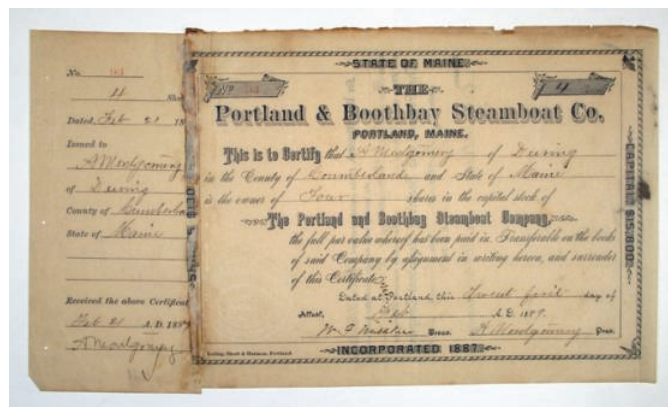 No.
4
Dated, Feb 21 18
Issued to
A Montgomery
of Deering
County of Cumberla
State of Maine
Received the above Certificat
Feb 21 A.D. 188
A Montgomery
STATE OF MAINE
No
4
THE
Portland & Boothbay Steamboat Co.
PORTLAND, MAINE.
This is to Certify that A Montgomery of Deering
in the County of Cumberland and State of Maine
is the owner of Four shares in the capital stock of
The Portland and Boothbay Steamboat Company,
the full par value whereof has been paid in. Transferable on the books
of said Company by assignment in writing hereon, and surrender
of this Certificate.
Dated at Portland, this day of
Attest, Feb A.D. 188
Treas. A Montgomery Pres.
INCORPORATED 1887.
CAPITAL $15,800